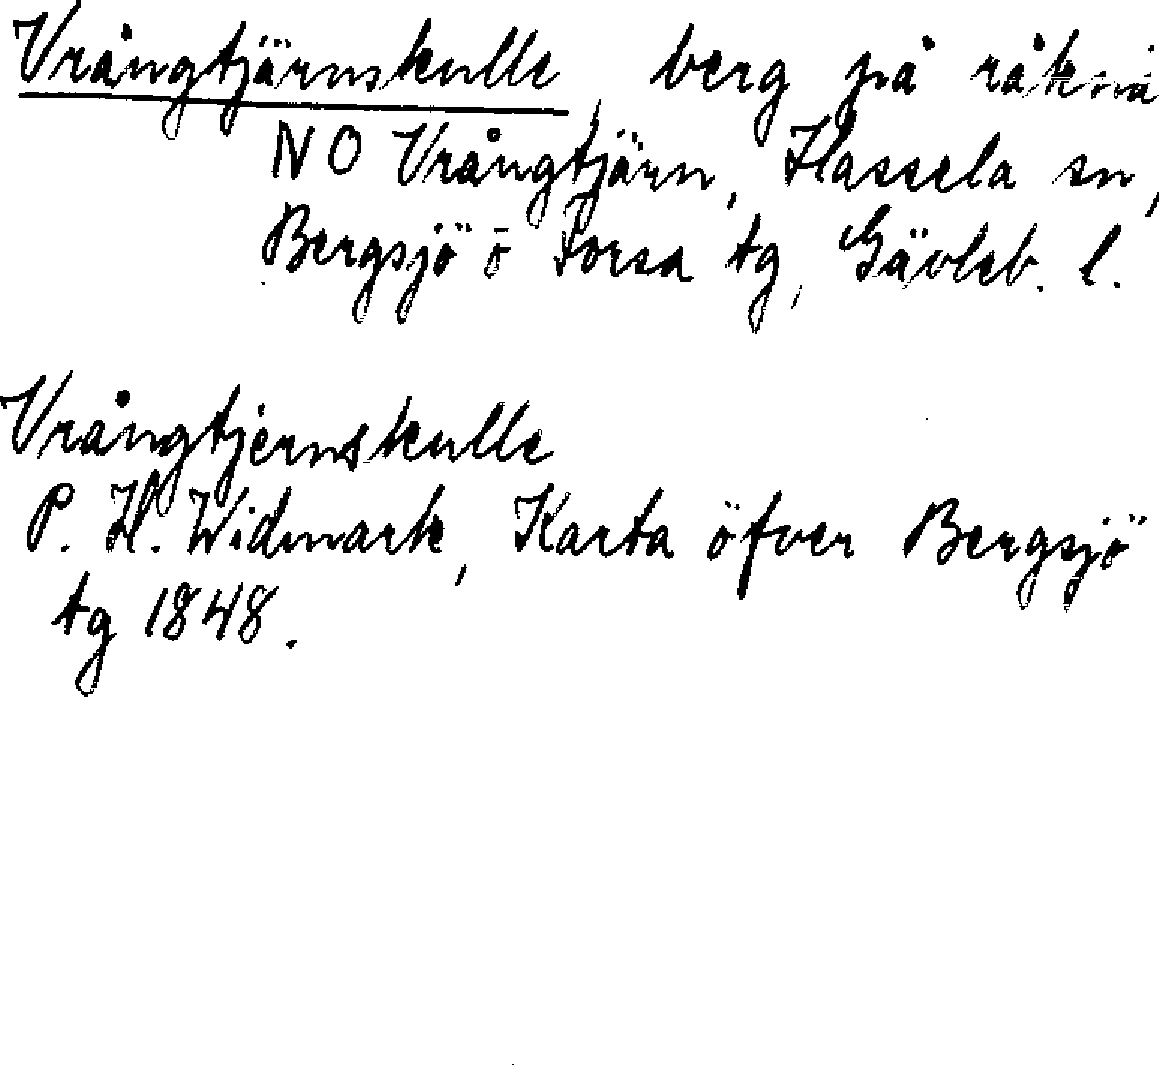 Vrångtjärnskulle, berg på råknå
NO Vrångtjärn, Hassela sn,
Bergsjö o Forsa tg, Gävleb. l.
Vrångtjernskulle
P. H. Widmark, Karta öfver Bergsjö
tg 1848.